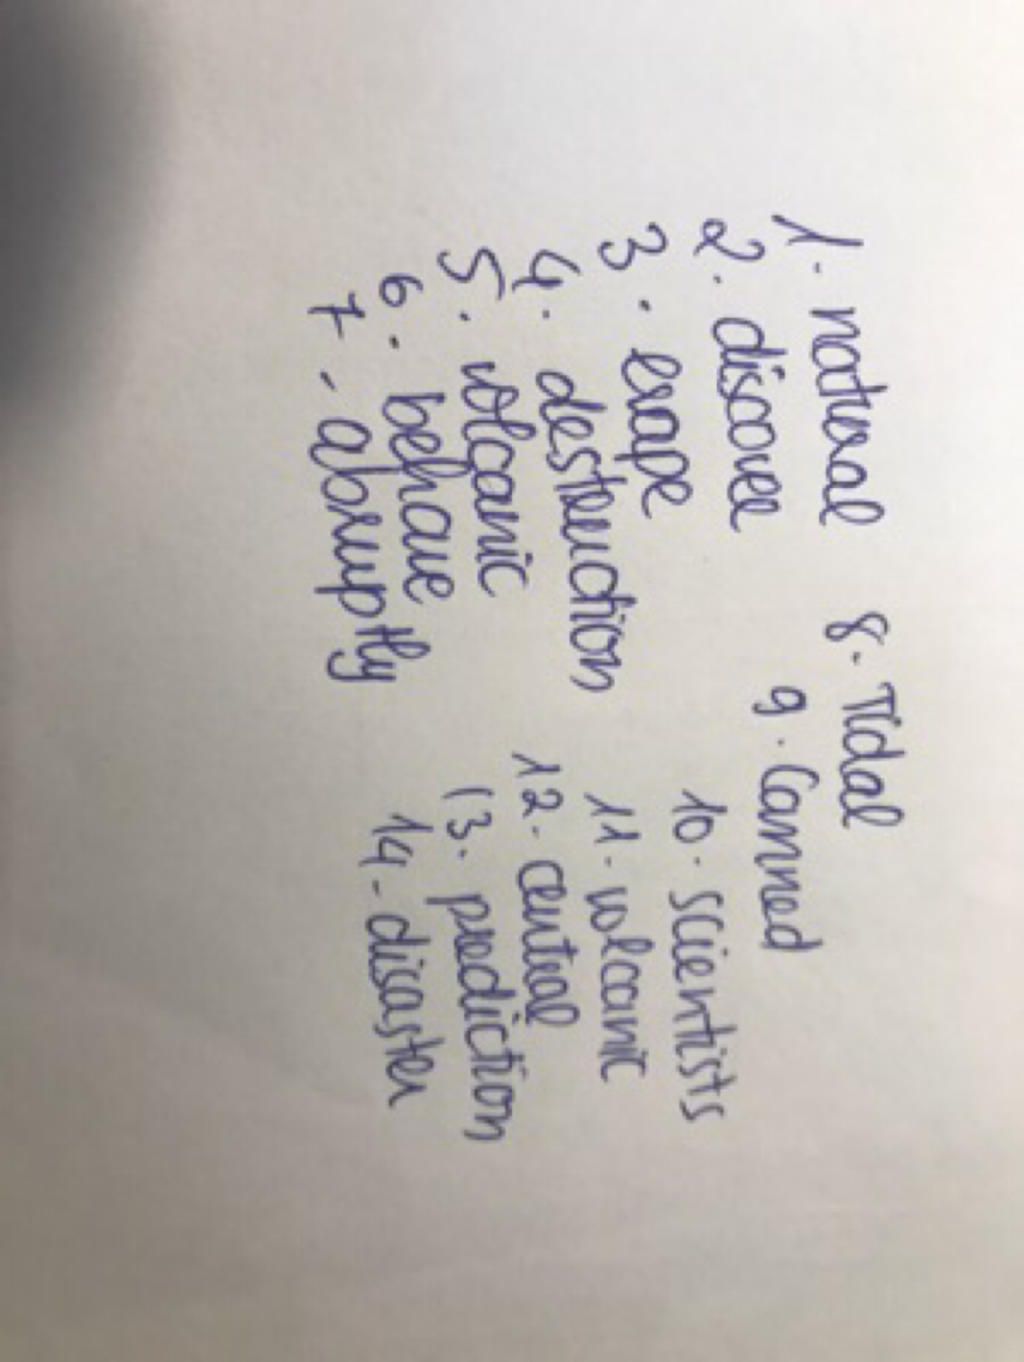 1. natural
2. discover
3. escape
4. destruction
5. volcanic
6. behave
7. abruptly
8. Tidal
9. Canned
10. scientists
11. volcanic
12. central
13. prediction
14. disaster